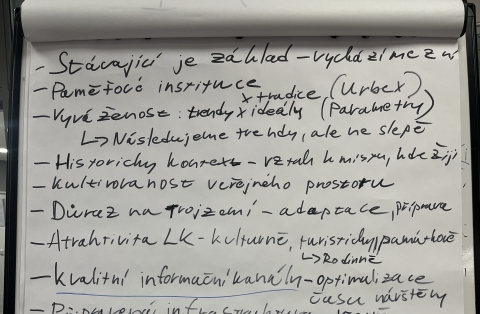 - Stávající je základ - vychází me z ní
- Paměťové instituce
x tradice (Urbex)
- Vyváženost: trendy x ideály (Parametry)
↳ Následujeme trendy, ale ne slepě
- Historický kontext - vztah k místu, kde žiji
- kultivovanost veřejného prostoru
- Důraz na trojzemí - adaptace, příprava
- Atraktivita LK - kulturně, turisticky, památkově
↳ Rodinně
- kvalitní informační kanály - optimalizace
času návštěvy